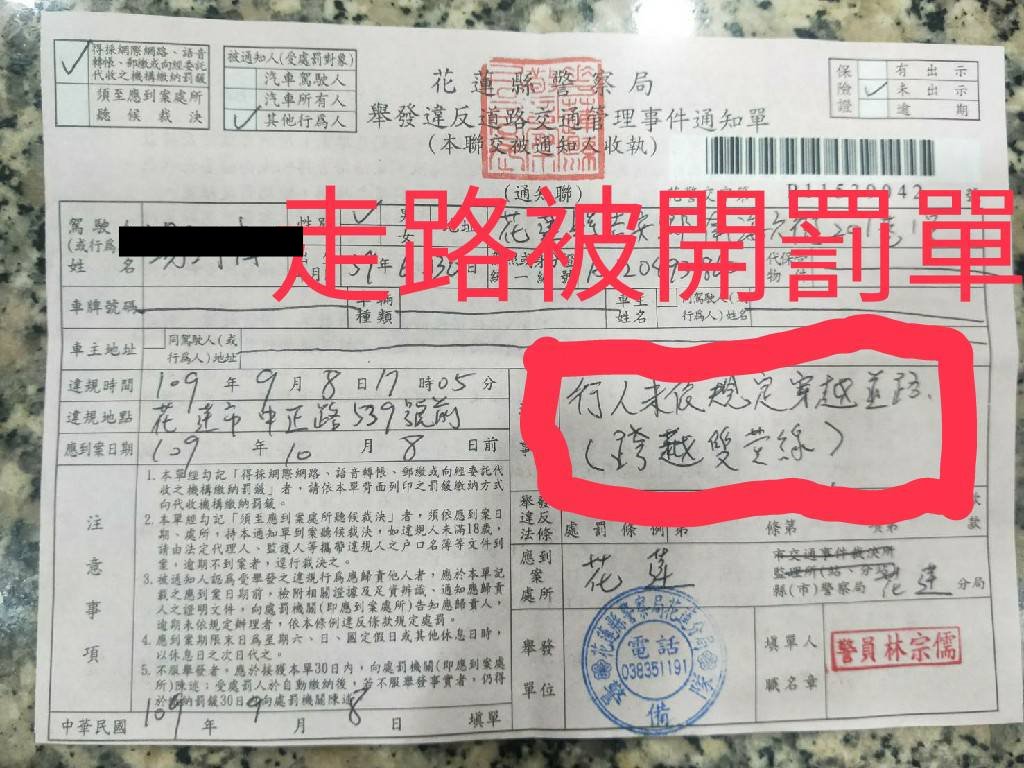 得採網際網路、語音
轉帳、郵繳或向經委託
代收之機構繳納罰鍰
須至應到案處所
聽候裁決
被通知人(受處罰對象)
汽車駕駛人
汽車所有人
其他行為人
花蓮縣警察局
舉發違反道路交通管理事件通知單
(本聯交被通知人收執)
(通知聯)
保險證
有出示
未出示
逾期
走路被開罰單
駕駛人
(或行為
姓名
車牌號碼
車輛種類
車主姓名
車主地址
同駕駛人(或
行為人)地址
違規時間
109年9月8日17時05分
違規地點
花蓮市中正路539號前
應到案日期
109年10月8日前
行人未依規定穿越道路.
(跨越雙黃線)
注意事項
1.本單經勾記「得採網際網路、語音轉帳、郵繳或向經委託代
收之機構繳納罰鍰」者,請依本單背面列印之罰鍰繳納方式
向代收機構繳納罰鍰。
2.本單經勾記「須至應到案處所聽候裁決」者,須依應到案日
期、處所,持本通知單到案聽候裁決,如違規人未滿18歲,
請由法定代理人、監護人等攜帶違規人之戶口名簿等文件到
案,逾期不到案者,逕行裁決之。
3.被通知人認為受舉發之違規行為應歸責他人者,應於本單記
載之應到案日期前,檢附相關證據及足資辨識、通知應歸責
人之證明文件,向處罰機關(即應到案處所)告知應歸責人,
逾期未依規定辦理者,依本條例違反條款規定處罰。
4.應到案期限末日為星期六、日、國定假日或其他休息日時,
以休息日之次日代之。
5.不服舉發者,應於接獲本單30日內,向處罰機關(即應到案處
所)陳述;受處罰人於自動繳納後,若不服舉發事實者,仍得
於繳納罰鍰30日內向處罰機關陳述
舉發違反法條
處罰條例第 條第 項第 款
應到案處所
花蓮
市交通事件裁決所
監理所(站、分站)
縣(市)警察局花蓮分局
舉發單位
花蓮縣警察局花蓮分局
電話
038351191
警備隊
填單人
職名章
警員林宗儒
中華民國109年9月8日填單